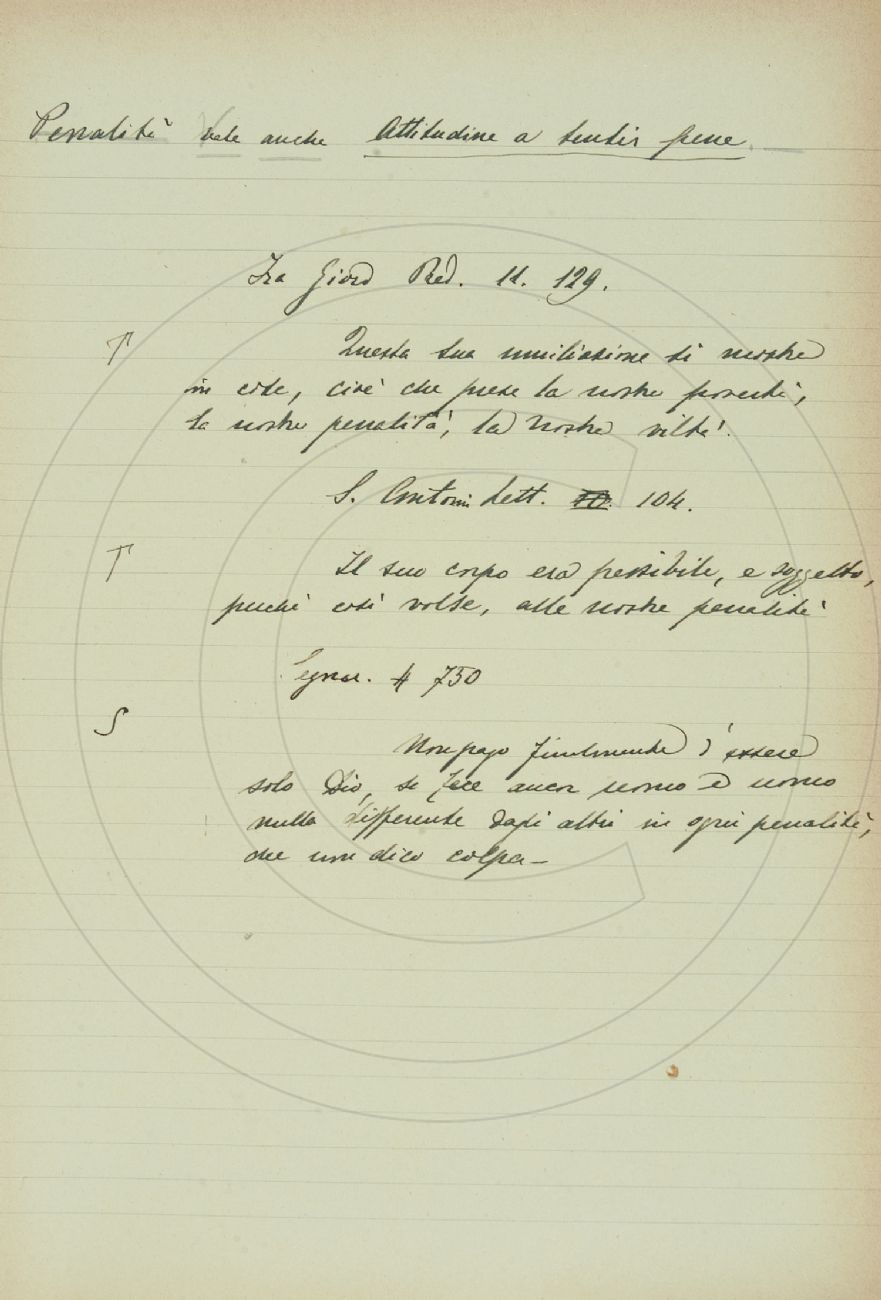 Penalità vale anche Attitudine a sentir pene.
Fra Giord Pred. 11. 129.
T
Questa sua umiliazione si mostra
in cose, cioè che prese la nostra povertà,
la nostra penalità, la nostra viltà.
S. Antonin. Lett. 104.
T
Il suo corpo era passibile, e soggetto,
perché così volse, alle nostre penalità
Segner. 4 750
S
Non pago finalmente d'essere
solo Dio, se fece ancor uomo e uomo
nulla differente dagli altri in ogni penalità,
che non dico colpa—